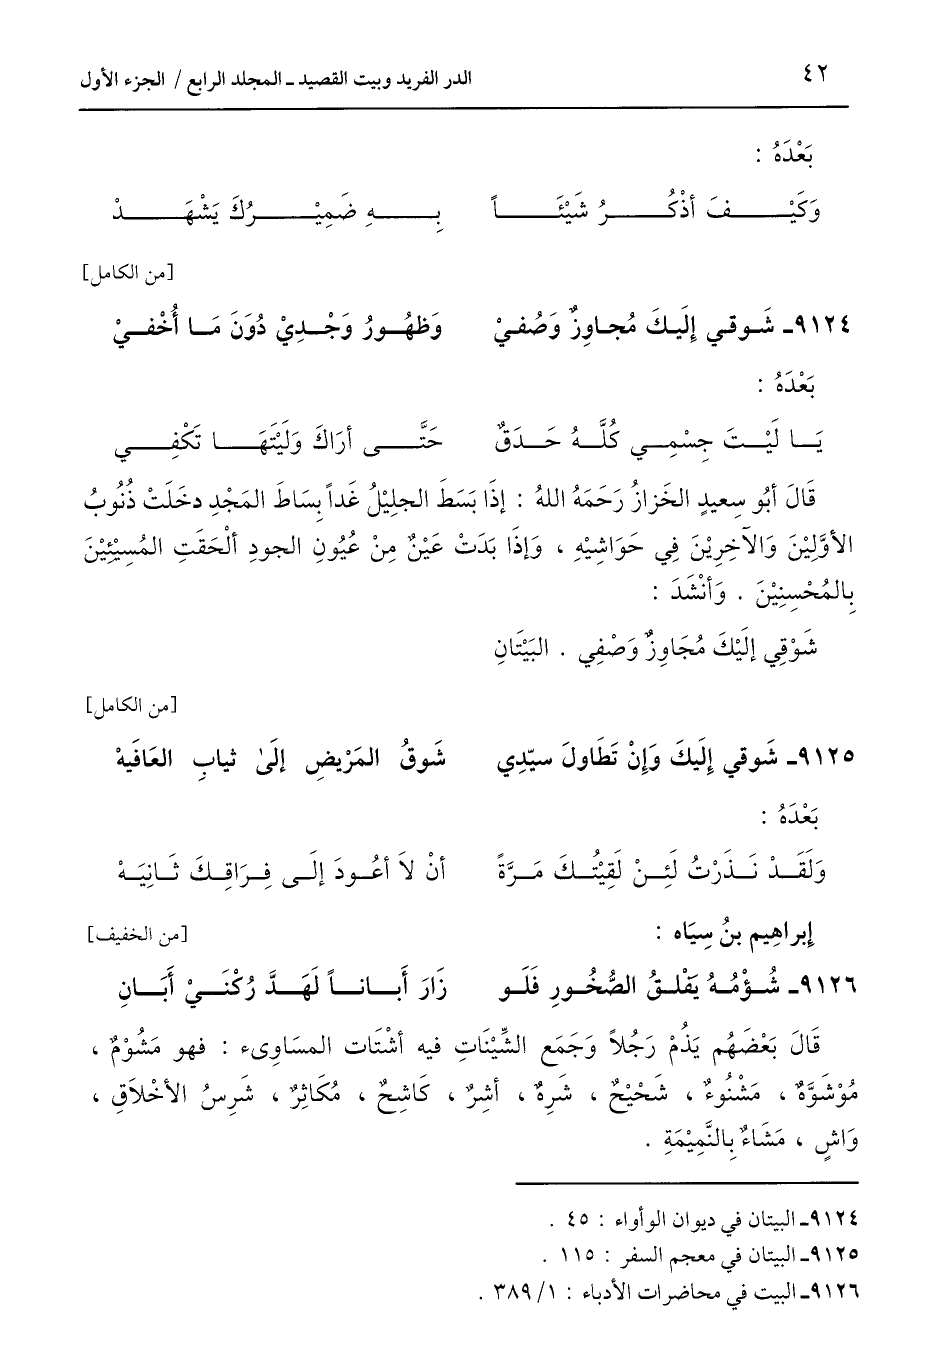 ٤٢ الدر الفريد وبيت القصيد ـ المجلد الرابع / الجزء الأول
بَعْدَهُ :
وَكَيْفَ أذْكُرُ شَيْئَاً بِهِ ضَمِيْرُكَ يَشْهَدْ
[من الكامل]
٩١٢٤ـ شَوقي إِلَيكَ مُجاوِزٌ وَصْفيْ وَظهُورُ وَجْدِيْ دُوْنَ مَا أُخْفيْ
بَعْدَهُ :
يَا لَيْتَ جِسْمِي كُلَّهُ حَدَقٌ حَتَّى أرَاكَ وَلَيْتَهَا تَكْفِي
قَالَ أَبُو سعِيدٍ الخَرازُ رَحَمَهُ اللهُ : إذَا بَسَطَ الجلِيْلُ غَداً بِسَاطَ المَجْدِ دخَلَتْ ذُنُوبُ
الأوَّلِيْنَ وَالآخِرِيْنَ فِي حَوَاشِيْهِ ، وَإذَا بَدَتْ عَيْنٌ مِنْ عُيُونِ الجودِ ألْحَقَتِ المُسِيْئِيْنَ
بِالمُحْسِنِيْنَ . وَأنْشَدَ :
شَوْقِي إلَيْكَ مُجَاوِزٌ وَصْفِي . البَيْتَانِ
[من الكامل]
٩١٢٥ـ شَوقي إِلَيكَ وَإنْ تَطَاولَ سيّدِي شَوقُ المَرْيضِ إلَىٰ ثيابِ العَافَيهْ
بَعْدَهُ :
وَلَقَدْ نَذَرْتُ لَئِنْ لَقِيْتُكَ مَرَّةً أنْ لاَ أعُودَ إلَى فِرَاقِكَ ثَانِيَهْ
إبراهيم بنُ سِيَاه : [من الخفيف]
٩١٢٦ـ شُؤْمُهُ يَفْلقُ الصُّخُورِ فَلَو زَارَ أَبَاناً لَهَدَّ رُكْنَيْ أَبَانِ
قَالَ بَعْضَهُم يَذُمّ رَجُلاً وَجَمَع الشِّيْنَاتِ فيه أشْتَات المسَاوِىء : فهو مَشُوْمٌ ،
مُوْشَوَّهٌ ، مَشْنُوءٌ ، شَحْيْحٌ ، شَرِهٌ ، أشِرٌ ، كَاشِحٌ ، مُكَاثِرٌ ، شَرِسُ الأخْلاَقِ ،
وَاشٍ ، مَشَاءٌ بِالنَّمِيْمَةِ .
٩١٢٤ـ البيتان في ديوان الوأواء : ٤٥ .
٩١٢٥ـ البيتان في معجم السفر : ١١٥ .
٩١٢٦ـ البيت في محاضرات الأدباء : ١/ ٣٨٩ .